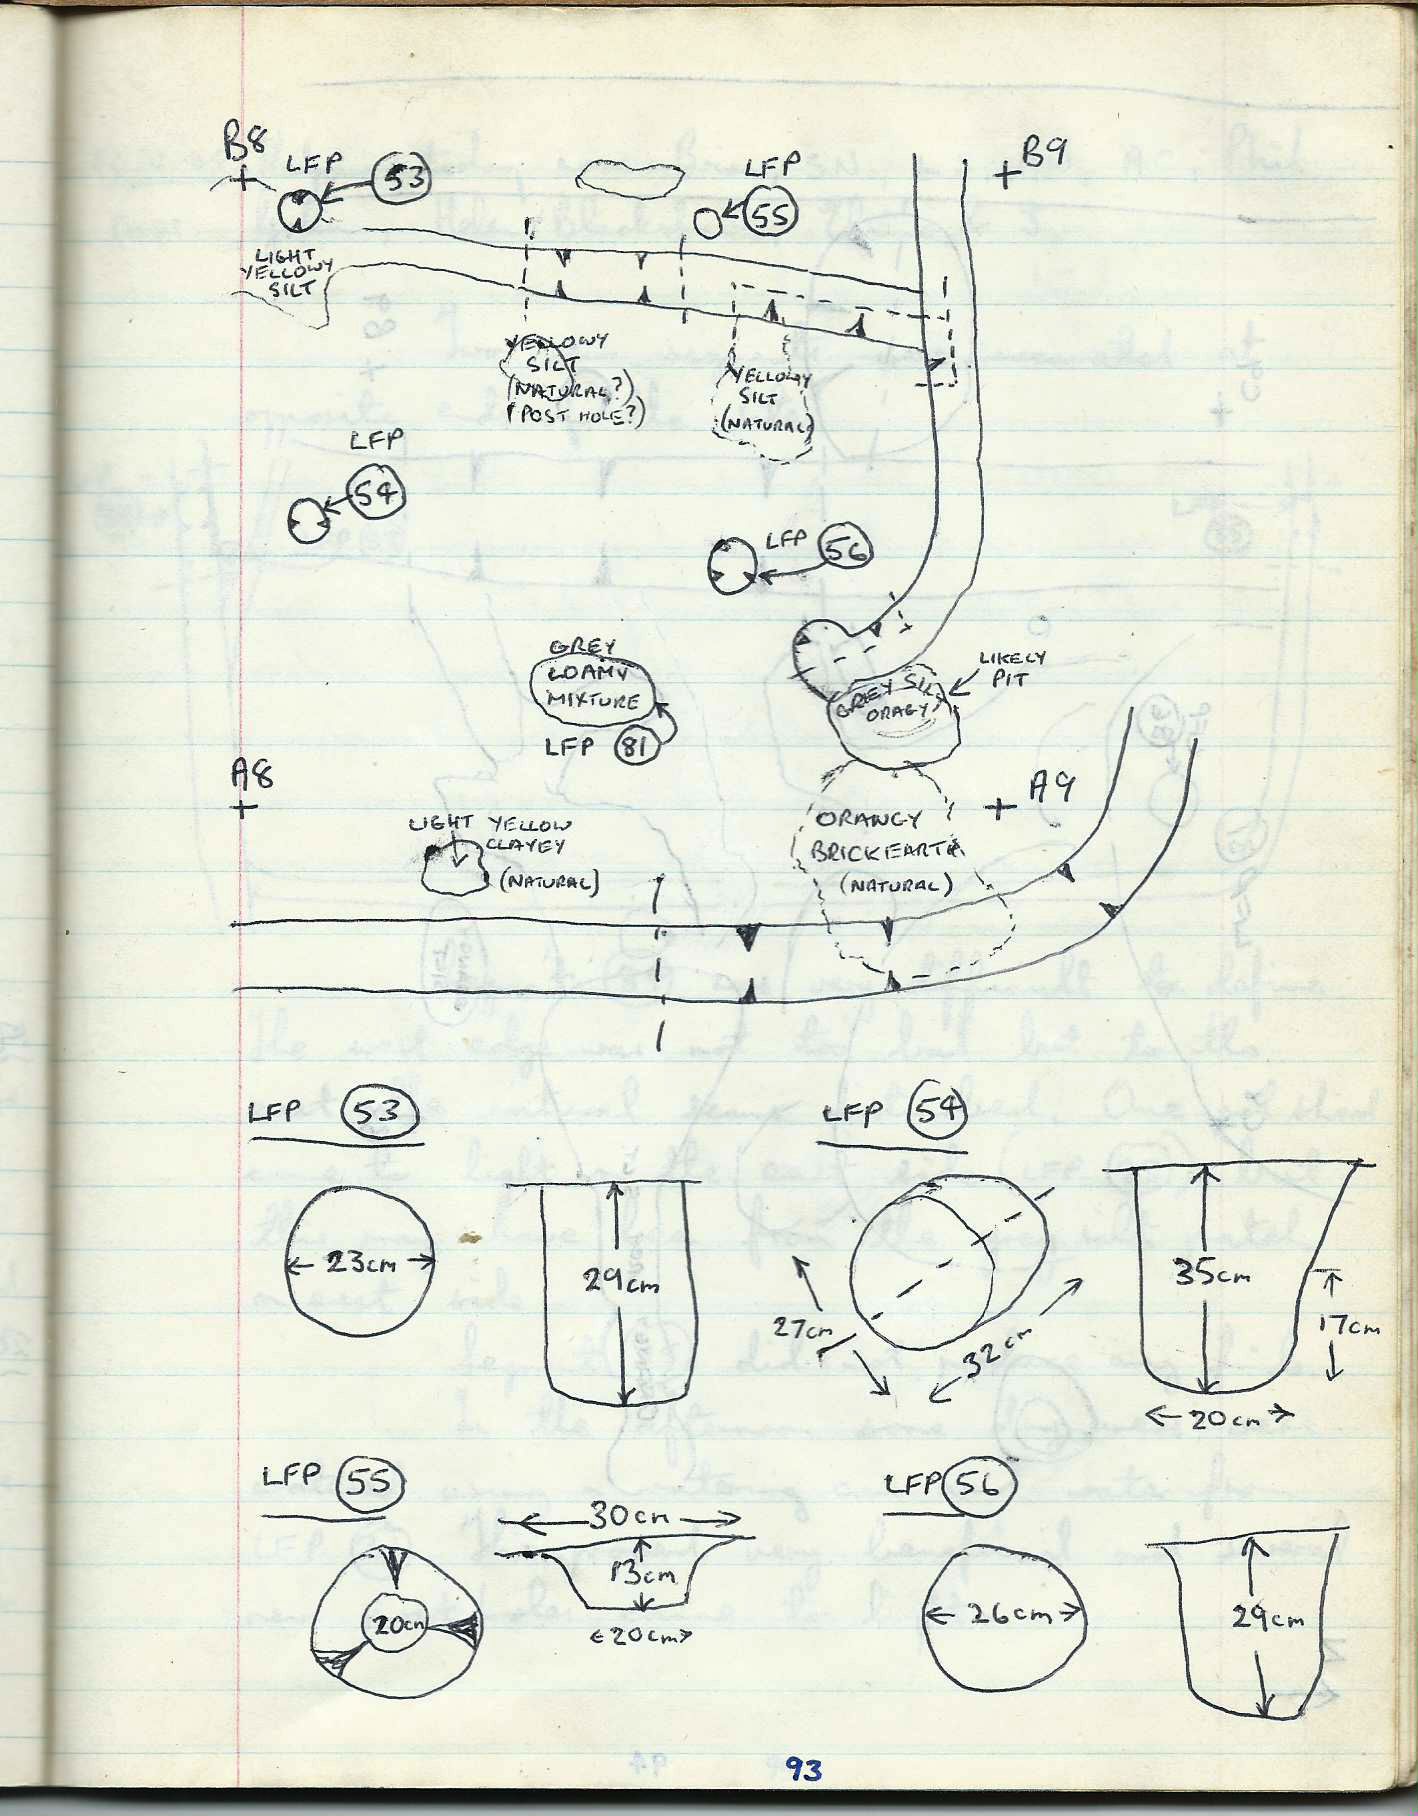 B8
LFP
53
LFP
55
B9
LIGHT
YELLOWY
SILT
YELLOWY
SILT
(NATURAL?)
(POST HOLE?)
YELLOWY
SILT
(NATURAL)
LFP
54
LFP 56
GREY
LOAMY
MIXTURE
LFP 81
LIKELY
PIT
GREY
ORAGY
A8
A9
LIGHT YELLOW
CLAYEY
(NATURAL)
ORANGY
BRICKEARTH
(NATURAL)
LFP 53
LFP 54
23cm
29cm
27cm
32cm
35cm
17cm
20cm
LFP 55
LFP 56
30cm
13cm
20cm
20cm
26cm
29cm
93